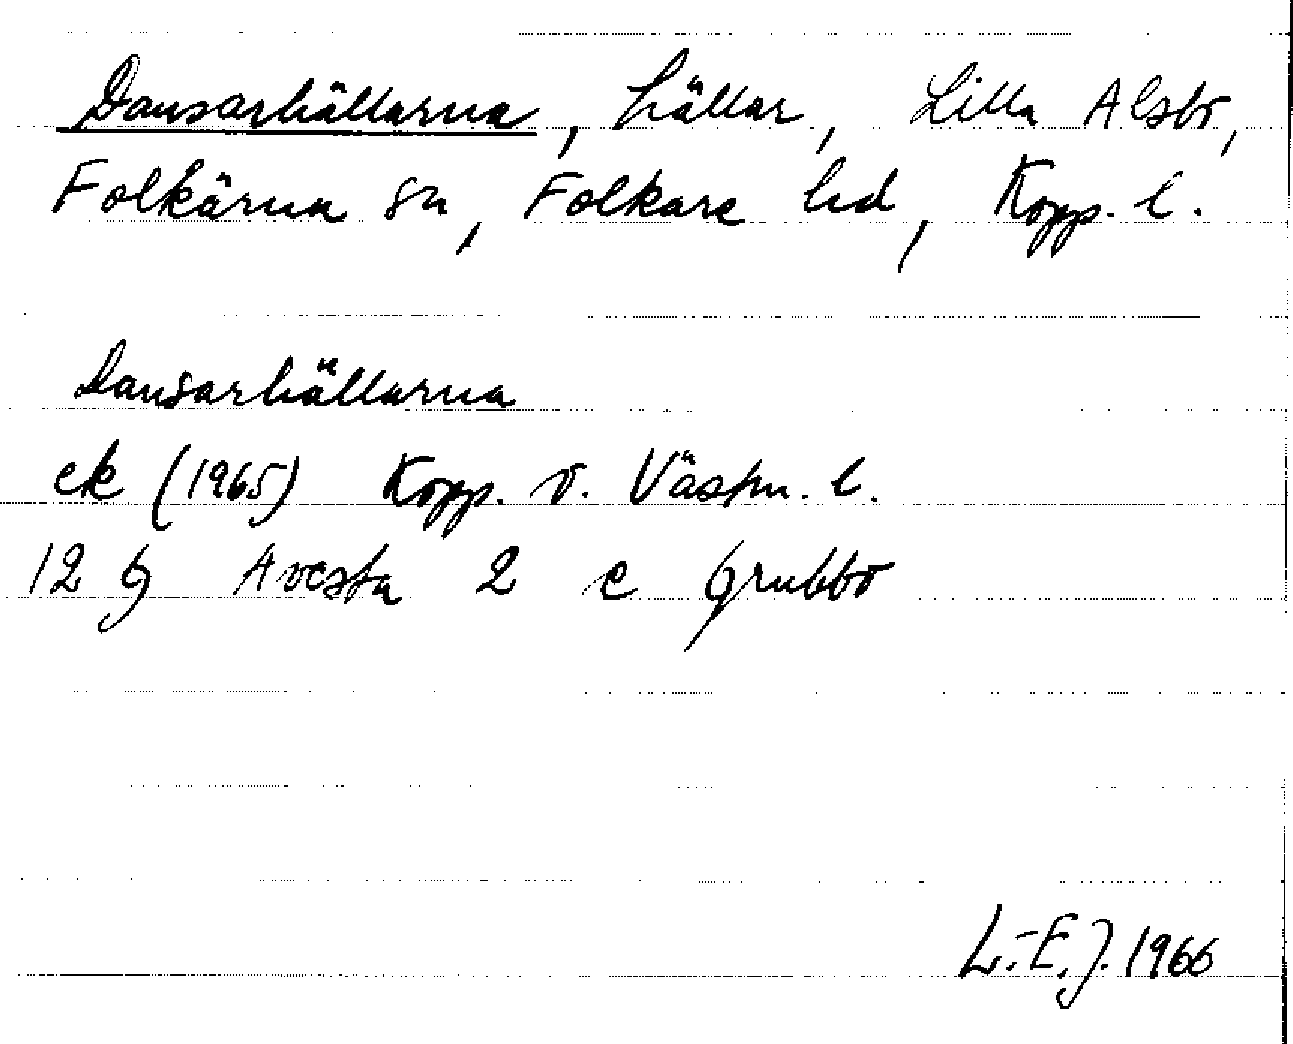 Dansarhällarna, hällar, Lilla Alsbo,
Folkärna sn, Folkare hd, Kopp. l.
Dansarhällarna
ek (1965) Kopp. o. Västm. l.
12 G Avesta 2 e Grubbo
L.-E.J. 1966